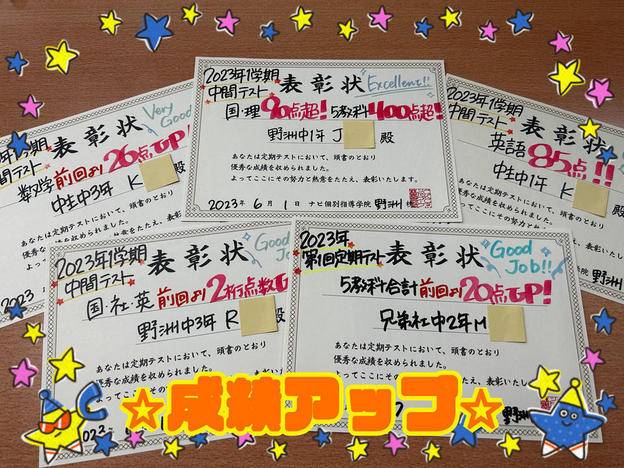 2023年1学期
中間テスト
表彰状
Excellent!!
国・理90点超!5教科400点超!
野洲中1年 J 殿
あなたは定期テストにおいて、頭書のとおり
優秀な成績を収められました。
よってここにその努力と熱意をたたえ、表彰いたします。
2023年 6月 1日 ナビ個別指導学院 野洲校
年1学期
中間テスト
表彰状
Very
Good
数学 前回より26点UP!
中主中3年 K
あなたは定期テストにおいて、頭書のとおり
優秀な成績を収められました。
2023年1学期
中間テスト
表彰状
英語
85点!!
中主中1年 K
あなたは定期テストにおいて、頭書の
優秀な成績を収められました。
野洲
2023年1学期
中間テスト
表彰状
Good
国・社・英 前回より2桁点数U
野洲中3年 R 殿
あなたは定期テストにおいて、頭書のとおり
優秀な成績を収められました。
2023年
第1回定期テスト
表彰状
Good
Job!!
5教科合計 前回より20点UP!
兄弟社中2年M
あなたは定期テストにおいて、頭書のとおり
優秀な成績を収められました。
野洲
☆成績アップ☆